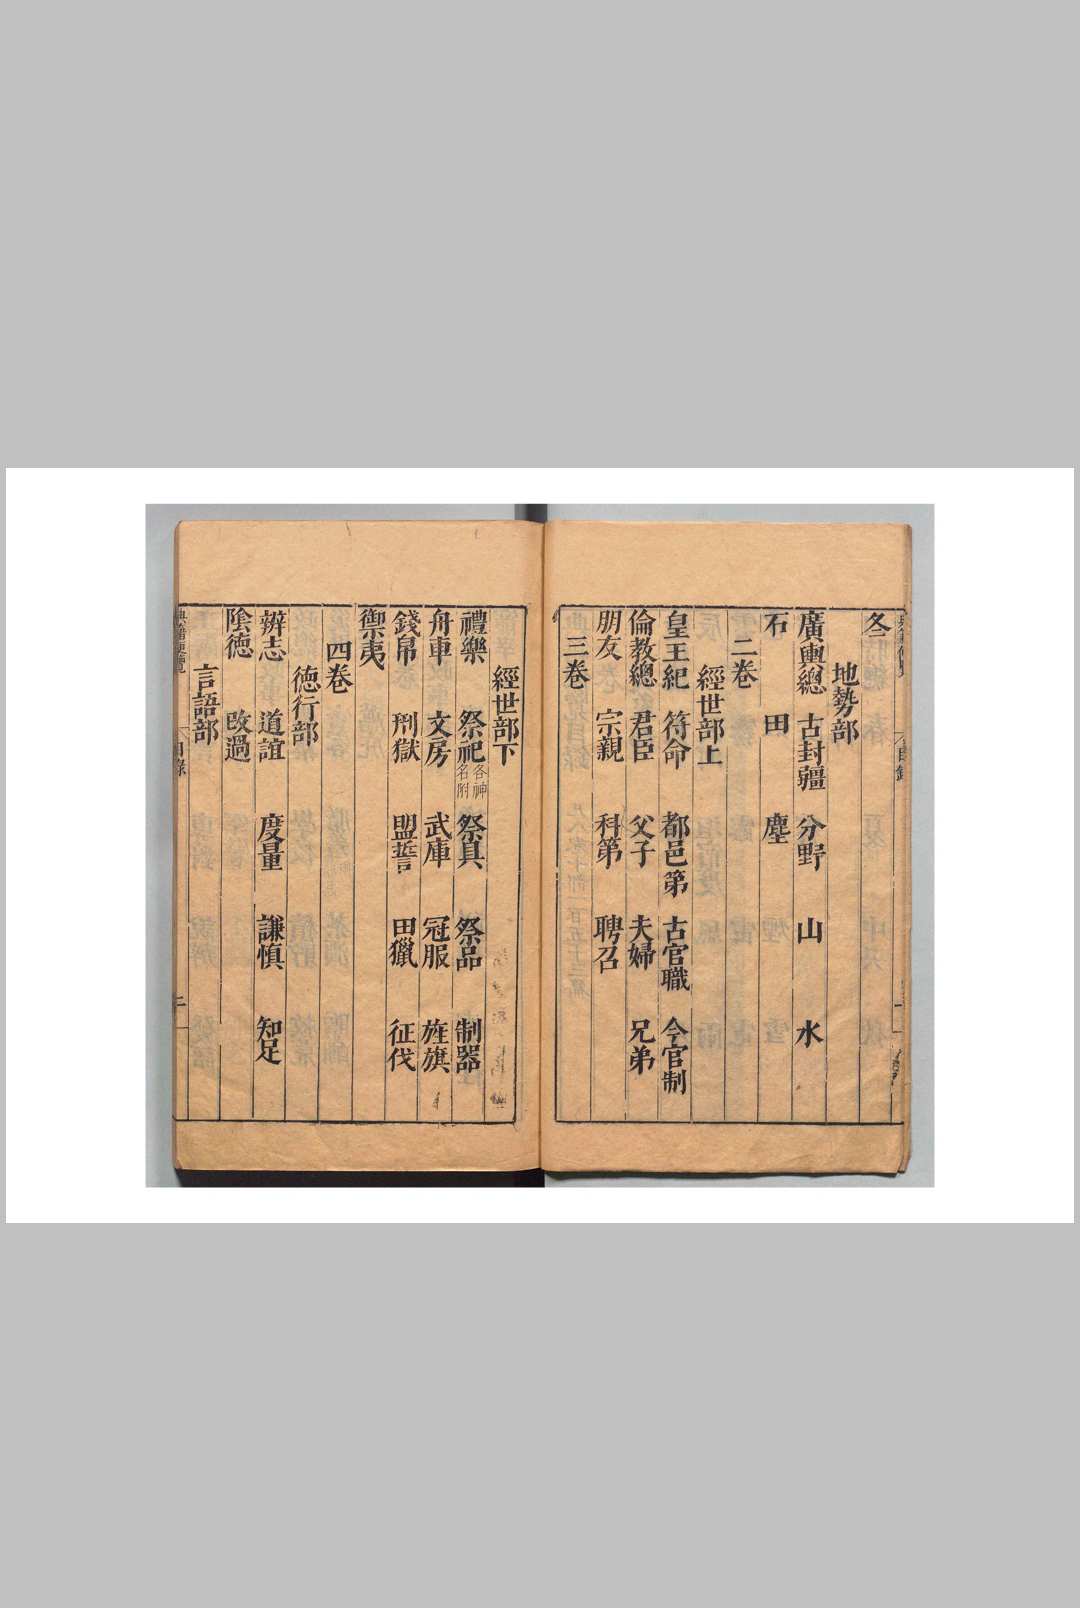 冬
地勢部
廣輿總 古封疆 分野 山 水
石 田 塵
二卷
經世部上
皇王紀 符命 都邑第 古官職 今官制
倫教總 君臣 父子 夫婦 兄弟
朋友 宗親 科第 聘召
三卷
經世部下
禮樂 祭祀各神名附 祭具 祭品 制器
舟車 文房 武庫 冠服 旌旗
錢帛 刑獄 盟誓 田獵 征伐
禦夷
四卷
德行部
辨志 道誼 度量 謙慎 知足
陰德 改過
言語部
目錄 二